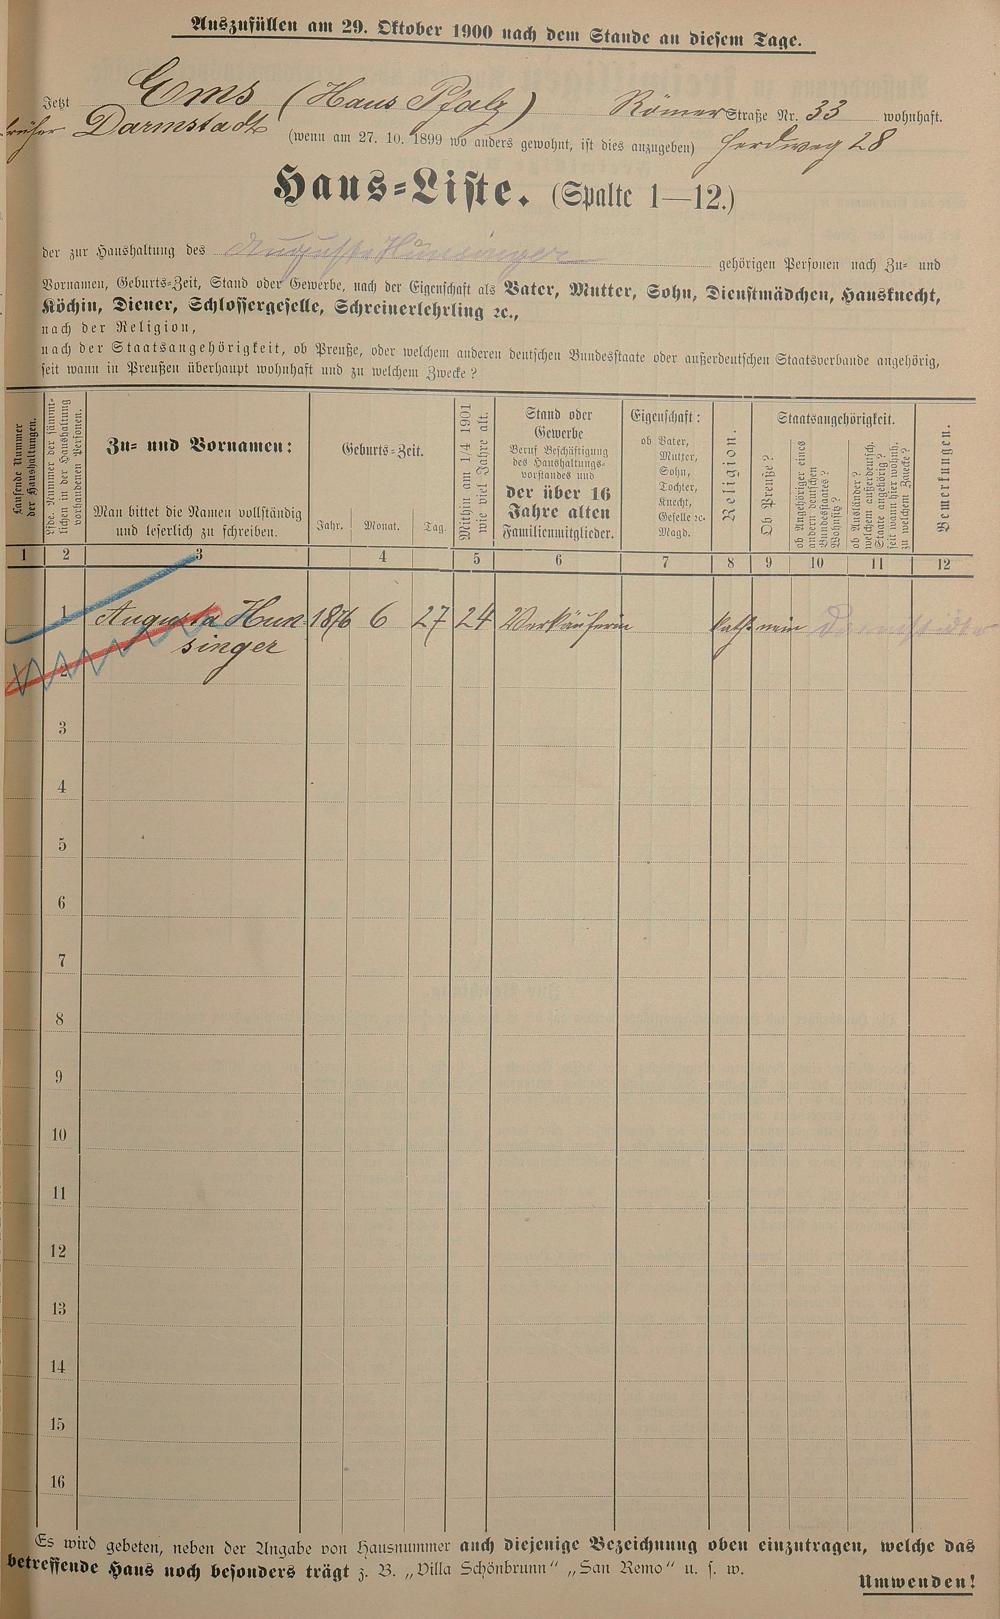 Auszufüllen am 29. Oktober 1900 nach dem Stande an diesem Tage.
Jetzt Ems (Haus Pfalz) Römer Straße Nr. 33 wohnhaft.
früher Darmstadt (wenn am 27. 10. 1899 wo anders gewohnt, ist dies anzugeben) Herdweg 28
Haus-Liste. (Spalte 1—12.)
der zur Haushaltung des Auguste Hunsinger gehörigen Personen nach Zu- und
Vornamen, Geburts-Zeit, Stand oder Gewerbe, nach der Eigenschaft als Vater, Mutter, Sohn, Dienstmädchen, Hausknecht,
Köchin, Diener, Schlossergeselle, Schreinerlehrling ꝛc.,
nach der Religion,
nach der Staatsangehörigkeit, ob Preuße, oder welchem anderen deutschen Bundesstaate oder außerdeutschen Staatsverbande angehörig,
seit wann in Preußen überhaupt wohnhaft und zu welchem Zwecke?
Laufende Nummer
der Haushaltungen.
Lfde. Nummer der sämmt-
lichen in der Haushaltung
vorhandenen Personen.
Zu- und Vornamen:
Man bittet die Namen vollständig
und leserlich zu schreiben.
Geburts-Zeit.
Jahr. Monat. Tag.
Mithin am 1/4 1901
wie viel Jahre alt.
Stand oder
Gewerbe
Beruf Beschäftigung
des Haushaltungs-
vorstandes und
der über 16
Jahre alten
Familienmitglieder.
Eigenschaft:
ob Vater,
Mutter,
Sohn,
Tochter,
Knecht,
Geselle ꝛc.
Magd.
Religion.
Staatsangehörigkeit.
Ob Preuße?
ob Angehöriger eines
andern deutschen
Bundesstaates?
Wohnsitz?
ob Ausländer?
welchem außerdeutsch.
Staate angehörig?
seit wann hier wohnh.
zu welchem Zwecke?
Bemerkungen.
1 2 3 4 5 6 7 8 9 10 11 12
1 Augusta Hun 1876 6 27 24 Verkäuferin kath. nein Darmstadt
singer
2
3
4
5
6
7
8
9
10
11
12
13
14
15
16
Es wird gebeten, neben der Angabe von Hausnummer auch diejenige Bezeichnung oben einzutragen, welche das
betreffende Haus noch besonders trägt z. B. „Villa Schönbrunn“ „San Remo“ u. s. w.
Umwenden!